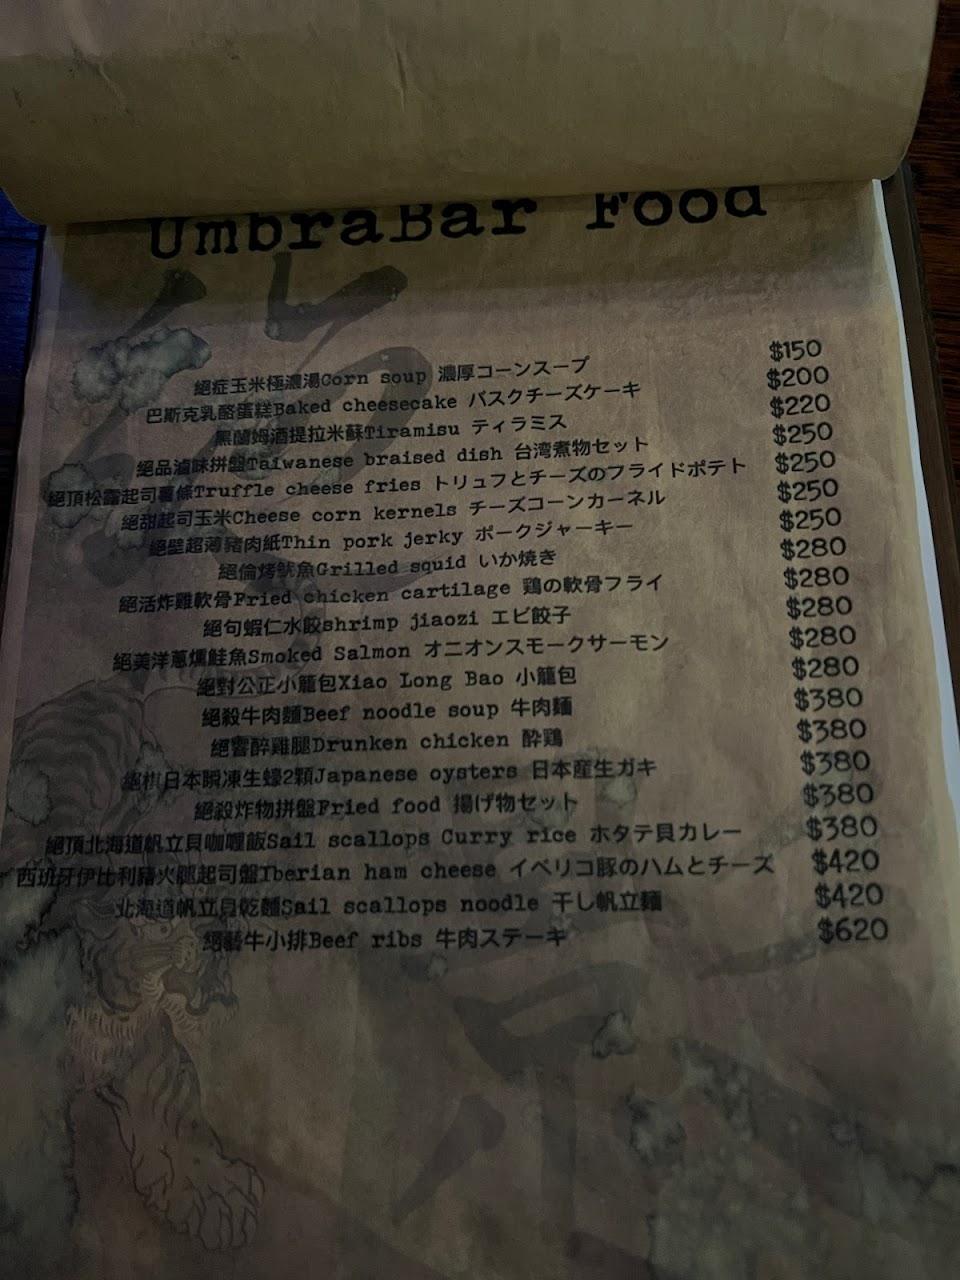 UmbraBar Food
絕症玉米極濃湯Corn soup 濃厚コーンスープ $150
巴斯克乳酪蛋糕Baked cheesecake バスクチーズケーキ $200
黑蘭姆酒提拉米蘇Tiramisu ティラミス $220
絕品滷味拼盤Taiwanese braised dish 台湾煮物セット $250
絕頂松露起司薯條Truffle cheese fries トリュフとチーズのフライドポテト $250
絕甜起司玉米Cheese corn kernels チーズコーンカーネル $250
絕壁超薄豬肉紙Thin pork jerky ポークジャーキー $250
絕倫烤魷魚Grilled squid いか焼き $280
絕活炸雞軟骨Fried chicken cartilage 鶏の軟骨フライ $280
絕句蝦仁水餃shrimp jiaozi エビ餃子 $280
絕美洋蔥燻鮭魚Smoked Salmon オニオンスモークサーモン $280
絕對公正小籠包Xiao Long Bao 小籠包 $280
絕殺牛肉麵Beef noodle soup 牛肉麺 $380
絕響醉雞腿Drunken chicken 酔鶏 $380
日本瞬凍生蠔2顆Japanese oysters 日本産生ガキ $380
絕殺炸物拼盤Fried food 揚げ物セット $380
絕頂北海道帆立貝咖喱飯Sail scallops Curry rice ホタテ貝カレー $380
西班牙伊比利豬火腿起司盤Iberian ham cheese イベリコ豚のハムとチーズ $420
北海道帆立貝乾麵Sail scallops noodle 干し帆立麺 $420
絕藝牛小排Beef ribs 牛肉ステーキ $620